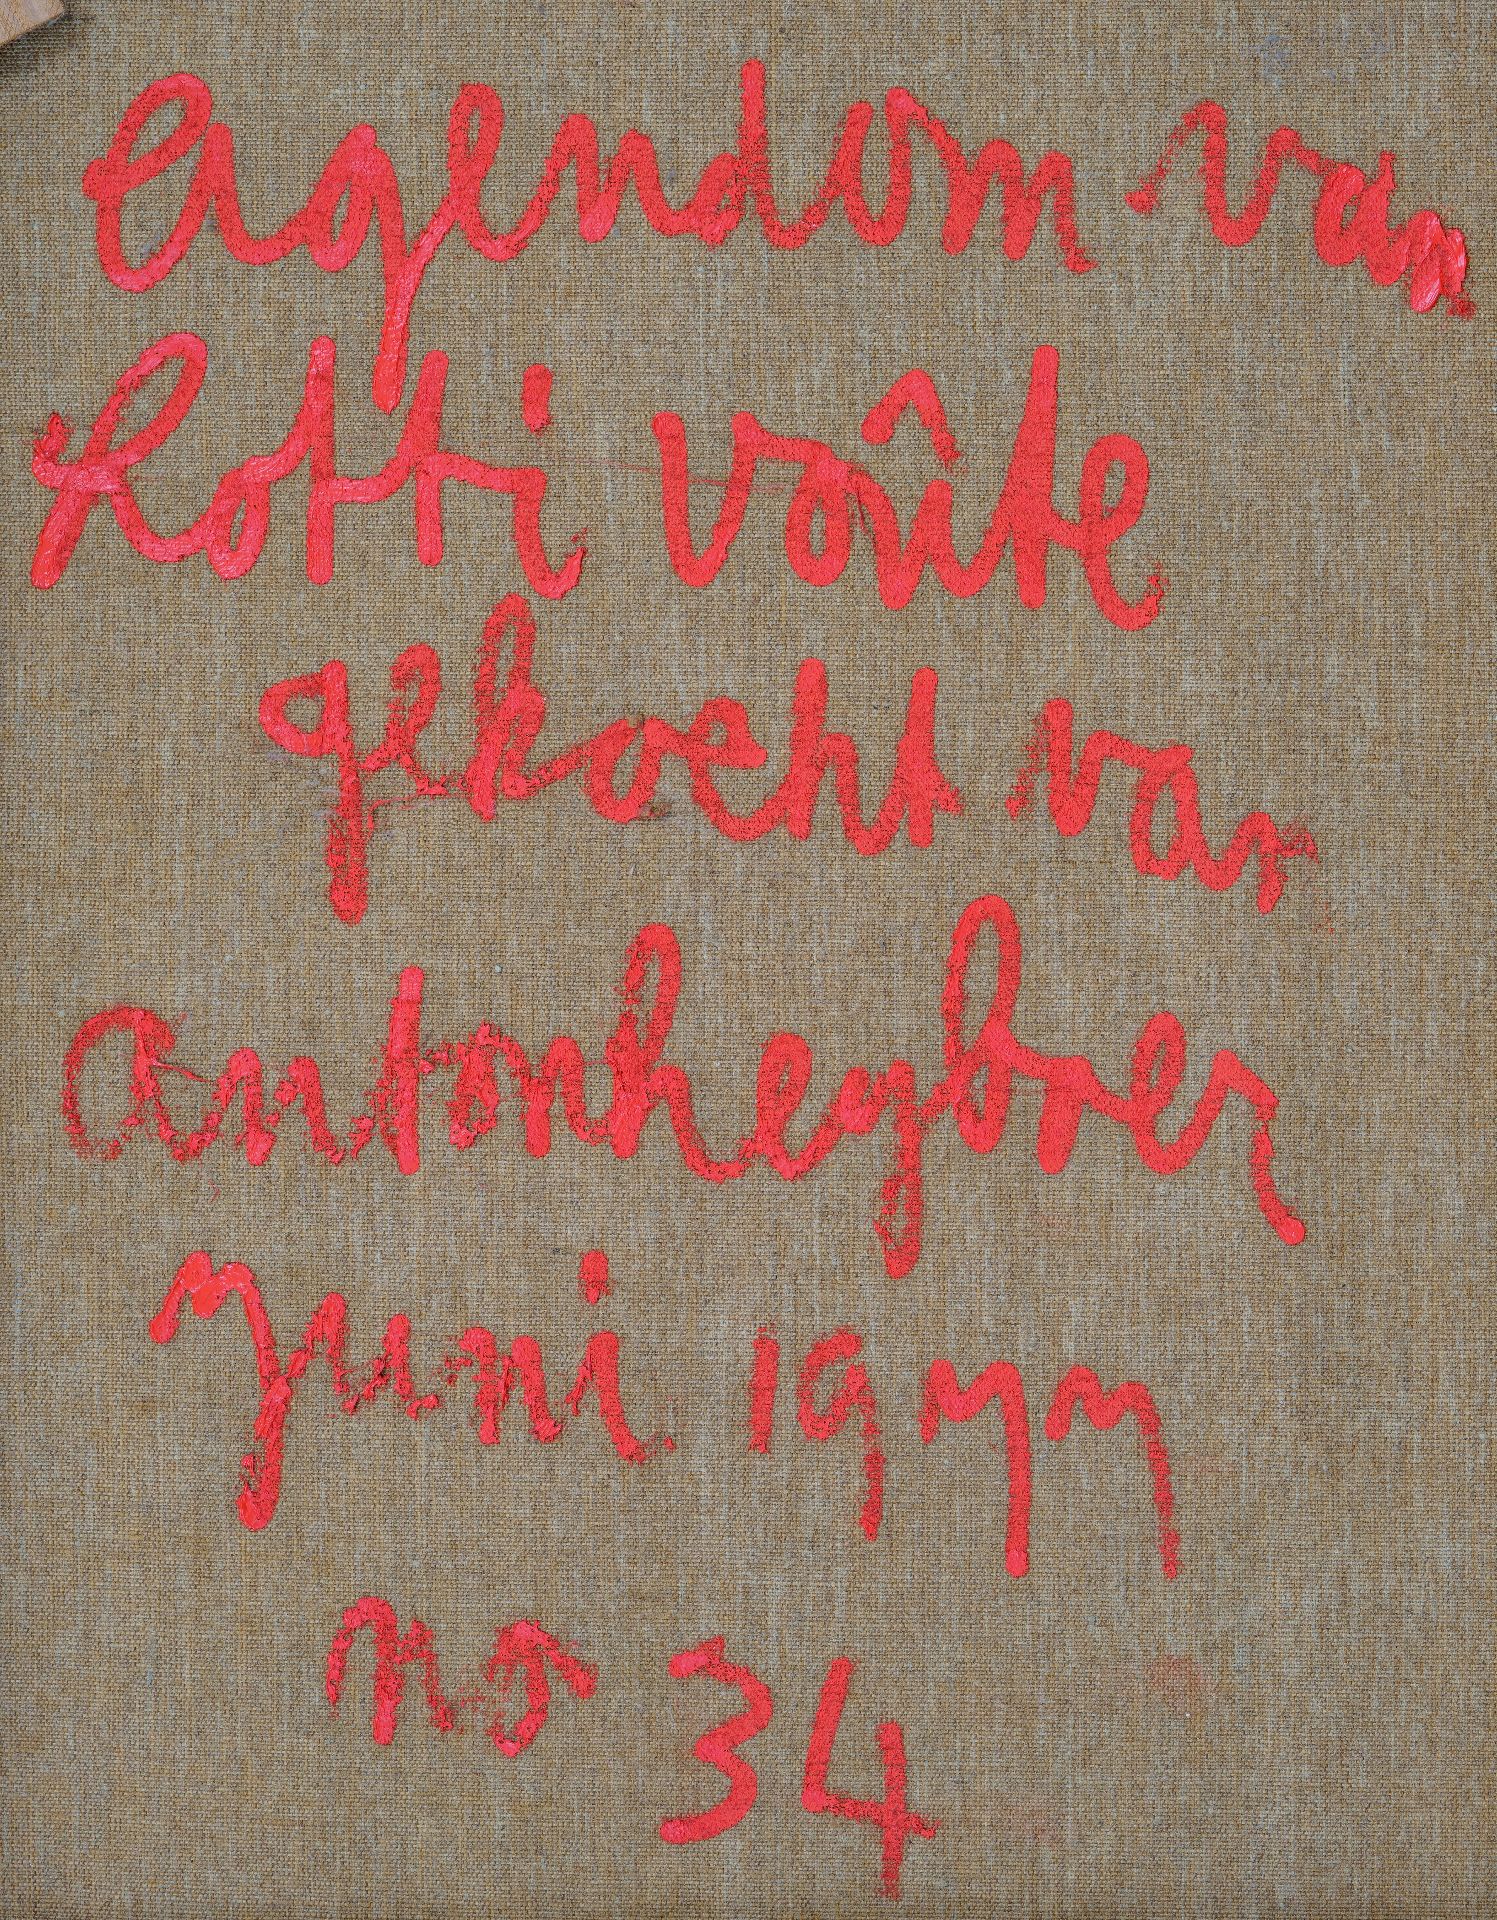 eigendom van
Lotti voûte
gekocht van
antonheyboer
Juni 1977
no 34